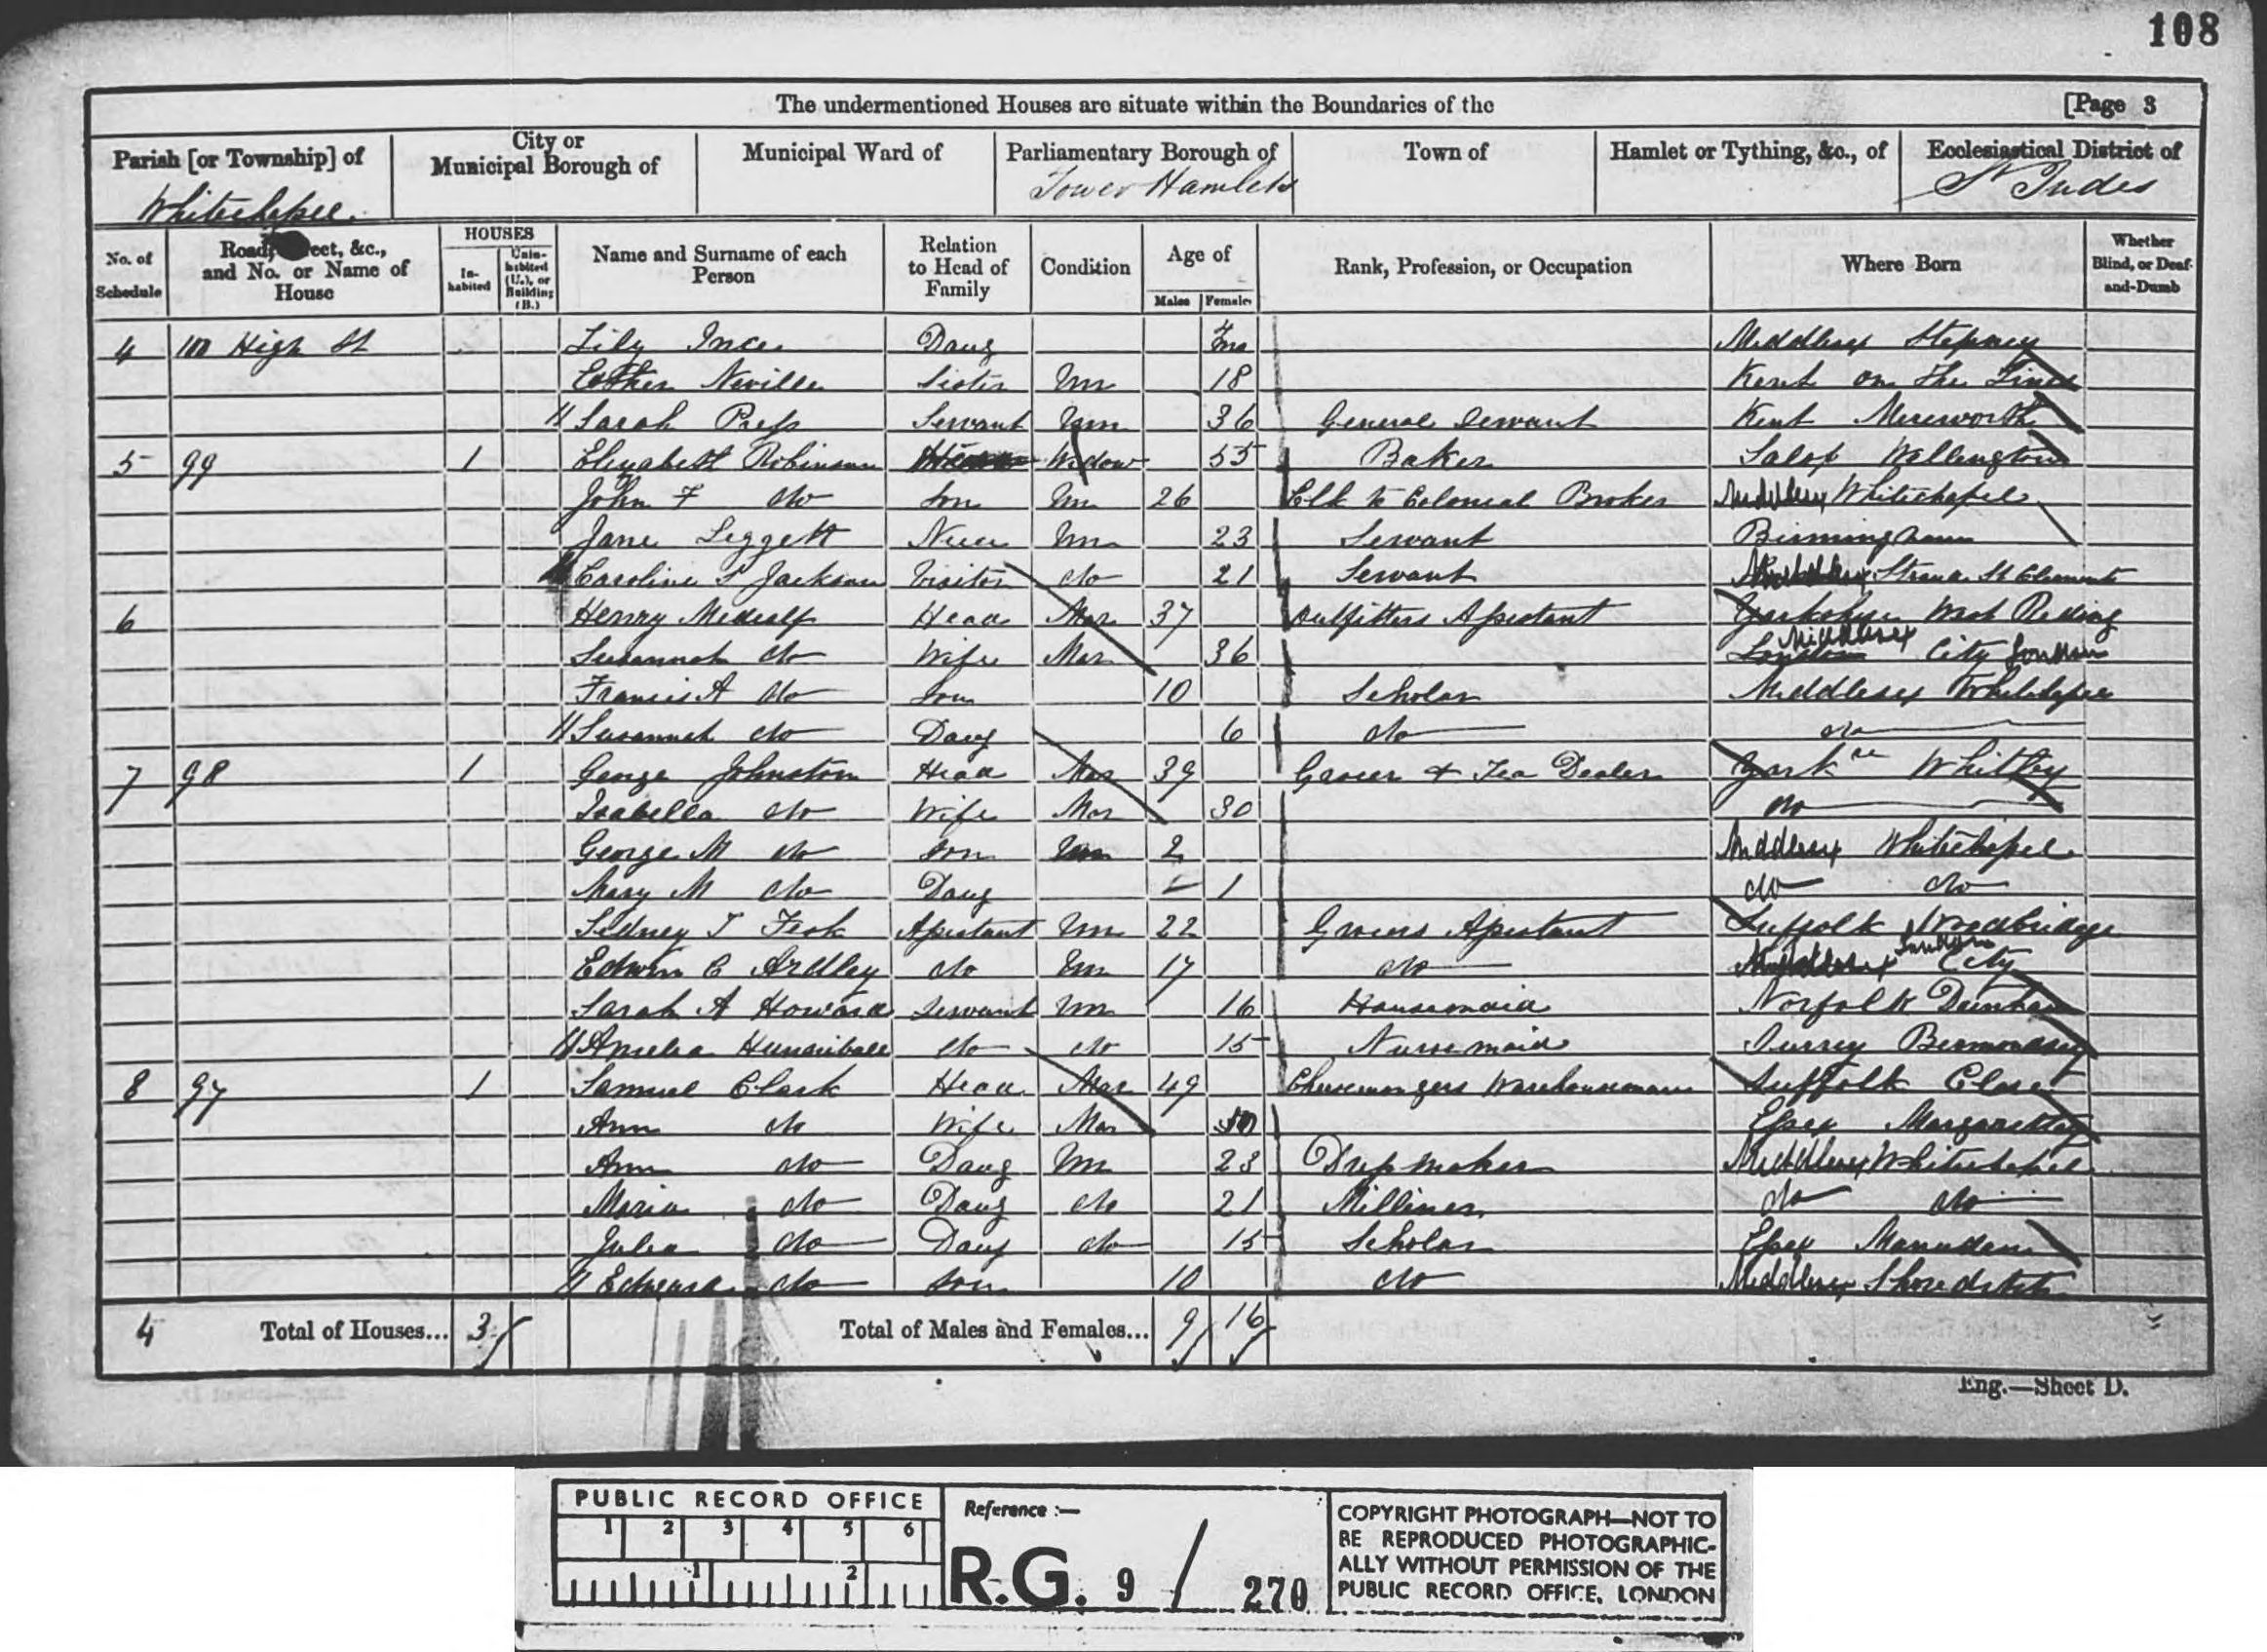 108
The undermentioned Houses are situate within the Boundaries of the [Page 3
Parish [or Township] of City or Municipal Borough of Municipal Ward of Parliamentary Borough of Town of Hamlet or Tything, &c., of Ecclesiastical District of
Whitechapel Tower Hamlets St Judes
No. of Schedule Road, Street, &c., and No. or Name of House HOUSES Inhabited Uninhabited (U.), or Building (B.) Name and Surname of each Person Relation to Head of Family Condition Age of Males Females Rank, Profession, or Occupation Where Born Whether Blind, or Deaf-and-Dumb
4 100 High St Lily Ince Daug Middlesex Stepney
Esther Neville Sister Un 18 Kent on the
Sarah Press Servant Un 36 General Servant Kent Mereworth
5 99 1 Elizabeth Robinson Head Widow 55 Baker Salop Wellington
John F do Son Un 26 Clk to Colonial Broker Middlesex Whitechapel
Jane Leggett Niece Un 23 Servant Birmingham
Caroline S Jackson Visitor do 21 Servant Middlesex Strand St Clements
6 Henry Medcalf Head Mar 37 Outfitters Assistant Yorkshire West Riding
Susannah do Wife Mar 36 London Middlesex City London
Francis A do Son 10 Scholar Middlesex Whitechapel
Susannah do Daug 6 do do
7 98 1 George Johnston Head Mar 39 Grocer & Tea Dealer York Whitby
Isabella do Wife Mar 30 do
George M do Son Un 2 Middlesex Whitechapel
Mary M do Daug 1 do do
Sidney T Fisk Assistant Un 22 Grocers Assistant Suffolk Woodbridge
Edwin C Ardley do Un 17 do Middlesex London City
Sarah A Howard Servant Un 16 Housemaid Norfolk
Amelia Hunnibell do do 15 Nursemaid Surrey Bermondsey
8 97 1 Samuel Clark Head Mar 49 Cheesemongers Warehouseman Suffolk Clare
Ann do Wife Mar 50 Essex Margaretting
Ann do Daug Un 23 Dressmaker Middlesex Whitechapel
Maria do Daug do 21 Milliner do do
Julia do Daug do 15 Scholar Essex Manuden
Edward do Son 10 do Middlesex Shoreditch
4 Total of Houses... 3 Total of Males and Females... 9 16
Eng.—Sheet D.
PUBLIC RECORD OFFICE
1 2 3 4 5 6
1 2
Reference :—
R.G. 9 / 270
COPYRIGHT PHOTOGRAPH—NOT TO
BE REPRODUCED PHOTOGRAPHIC-
ALLY WITHOUT PERMISSION OF THE
PUBLIC RECORD OFFICE, LONDON